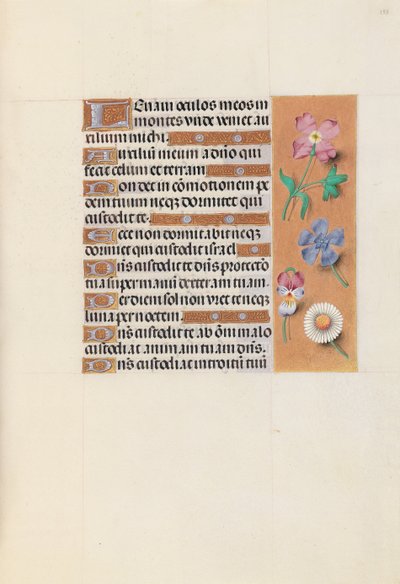 Leuaui oculos meos in
montes vnde veniet au
xilium michi.
Auxiliū meum a dn̄o qui
fecit celum et terram.
Non det in cōmotionem pe
dem tuum neqꝫ dormitet qui
custodit te.
Ecce non dormitabit neqꝫ
dormiet qui custodit isrl̄.
Dn̄s custodit te dn̄s protectō
tua super manū dexterā tuam.
Per diem sol non vret te neqꝫ
luna per noctem.
Dn̄s custodit te ab om̄i malo
custodiat animam tuam dn̄s.
Dn̄s custodiat introitū tuū